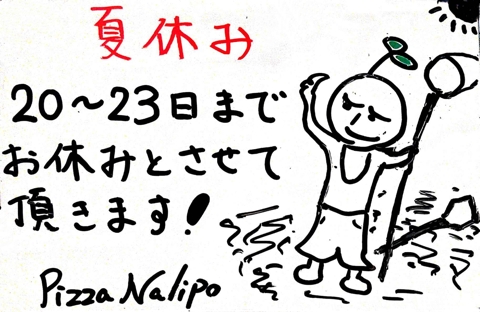 夏休み
20〜23日まで
お休みとさせて
頂きます！
Pizza Nalipo